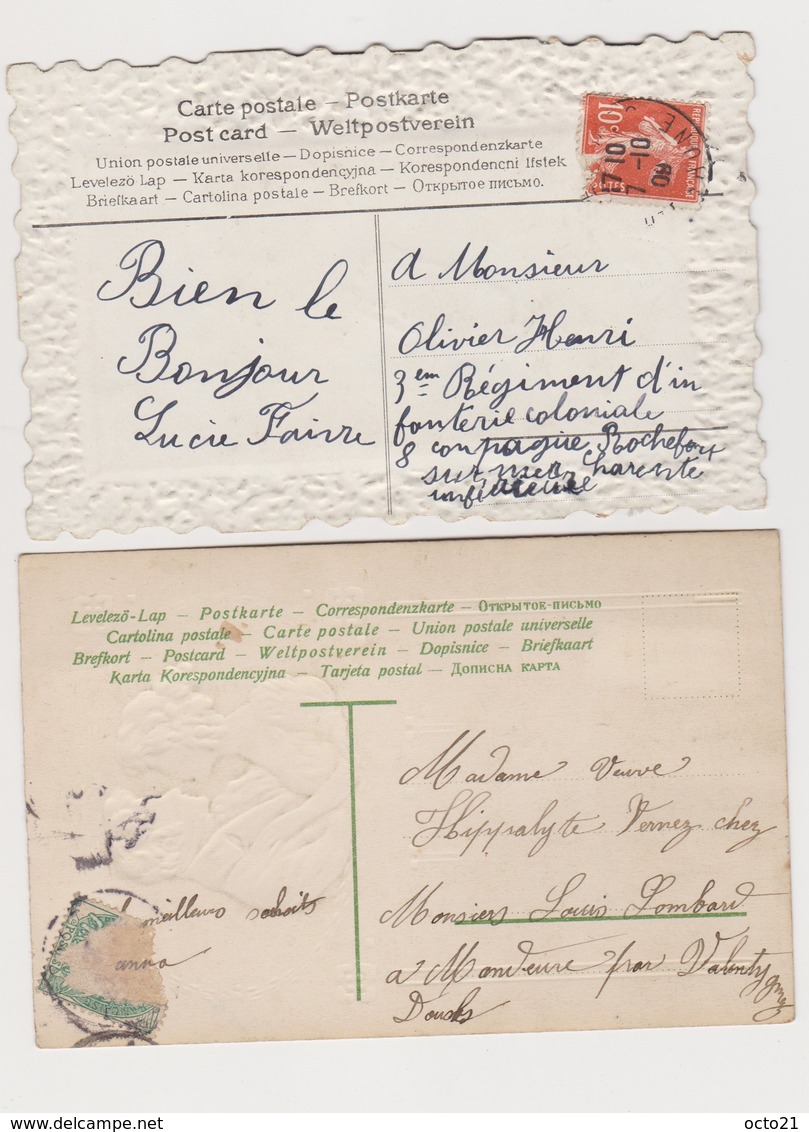 Carte postale – Postkarte
Post card – Weltpostverein
Union postale universelle – Dopisnice – Correspondenzkarte
Levelező Lap – Karta korespondencyjna – Korespondencni lístek
Briefkaart – Cartolina postale – Brefkort – Открытое письмо.
10c
REPUBLIQUE FRANÇAISE
POSTES
17 10
7 - 10
08
Bien le
Bonjour
Lucie Faivre
A Monsieur
Olivier Henri
3em Régiment d'in
fanterie coloniale
8 conpagnie Rochefort
sur mer Charente
inférieure
Levelező-Lap – Postkarte – Correspondenzkarte – Открытое-письмо
Cartolina postale – Carte postale – Union postale universelle
Brefkort – Postcard – Weltpostverein – Dopisnice – Briefkaart
Karta Korespondencyjna – Tarjeta postal – Дописна карта
meilleurs souhaits
anna
Madame Veuve
Hippolyte Vernez chez
Monsiers Louis Lombard
a Mandeure par Valenty
gney
Doubs
delcampe.net
octo21